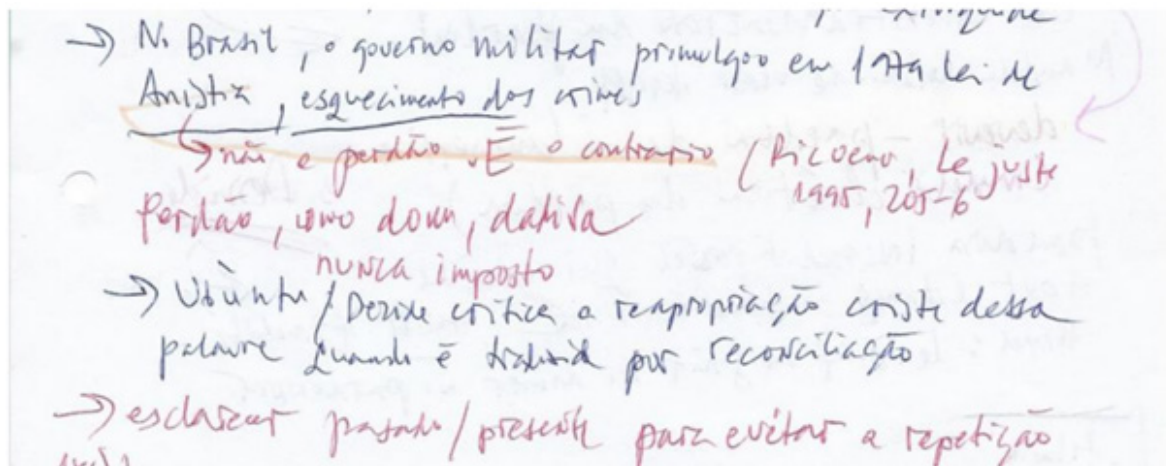 → No Brasil, o governo militar promulgou em 1979 a lei de
Anistia, esquecimento dos crimes
não é perdão. É o contrario (Ricoeur, Le juste
1995, 205-6
Perdão, como dom, dativa
nunca imposto
→ Ubuntu / Derride critica a reapropriação criste dessa
palavra quando é traduzida por reconciliação
→ esclarecer passado / presente para evitar a repetição